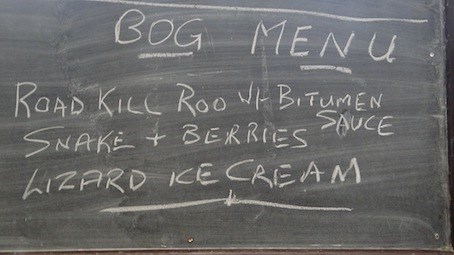 BOG MENU
ROAD KILL ROO W/- BITUMEN SAUCE
SNAKE + BERRIES
LIZARD ICE CREAM